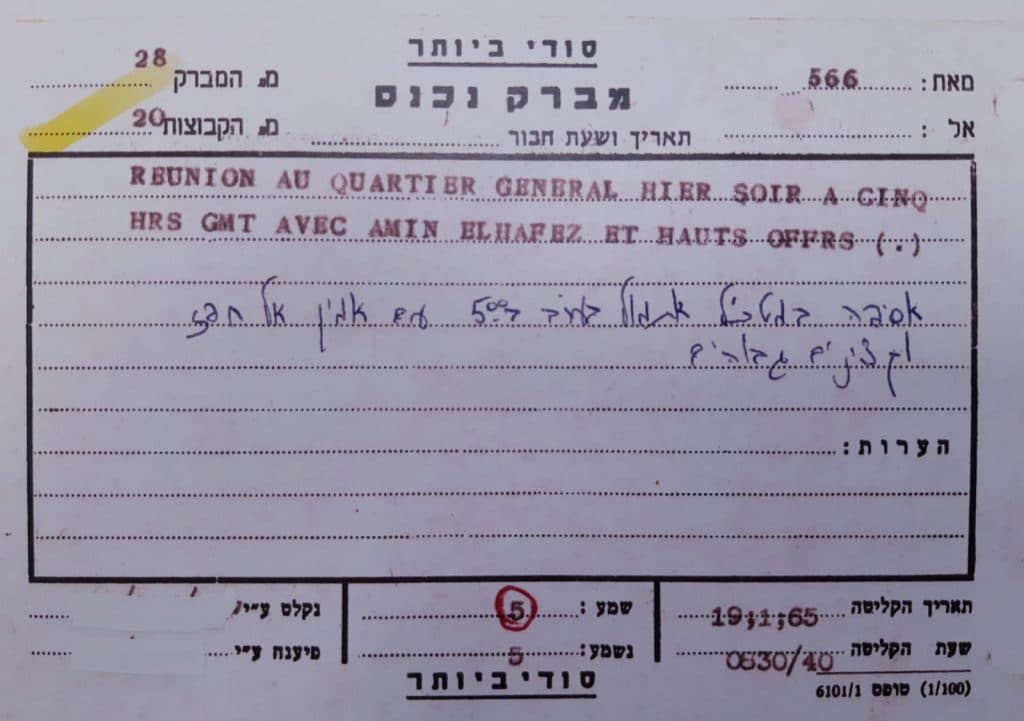 סודי ביותר
מברק נכנס
מאת: 566
אל:
תאריך ושעת חבור
מס. המברק 28
מס. הקבוצות 20
REUNION AU QUARTIER GENERAL HIER SOIR A CINQ
HRS GMT AVEC AMIN ELHAFEZ ET HAUTS OFFRS (.)
אסיפה במטכ"ל אתמול בערב ב-5⁰⁰ עם אמין אל חפז
וקצינים גבוהים
הערות:
תאריך הקליטה 19;1;65
שעת הקליטה 0830/40
שמע: 5
נשמע: 5
נקלט ע"י
פיענח ע"י
סודי ביותר
6101/1 טופס (1/100)